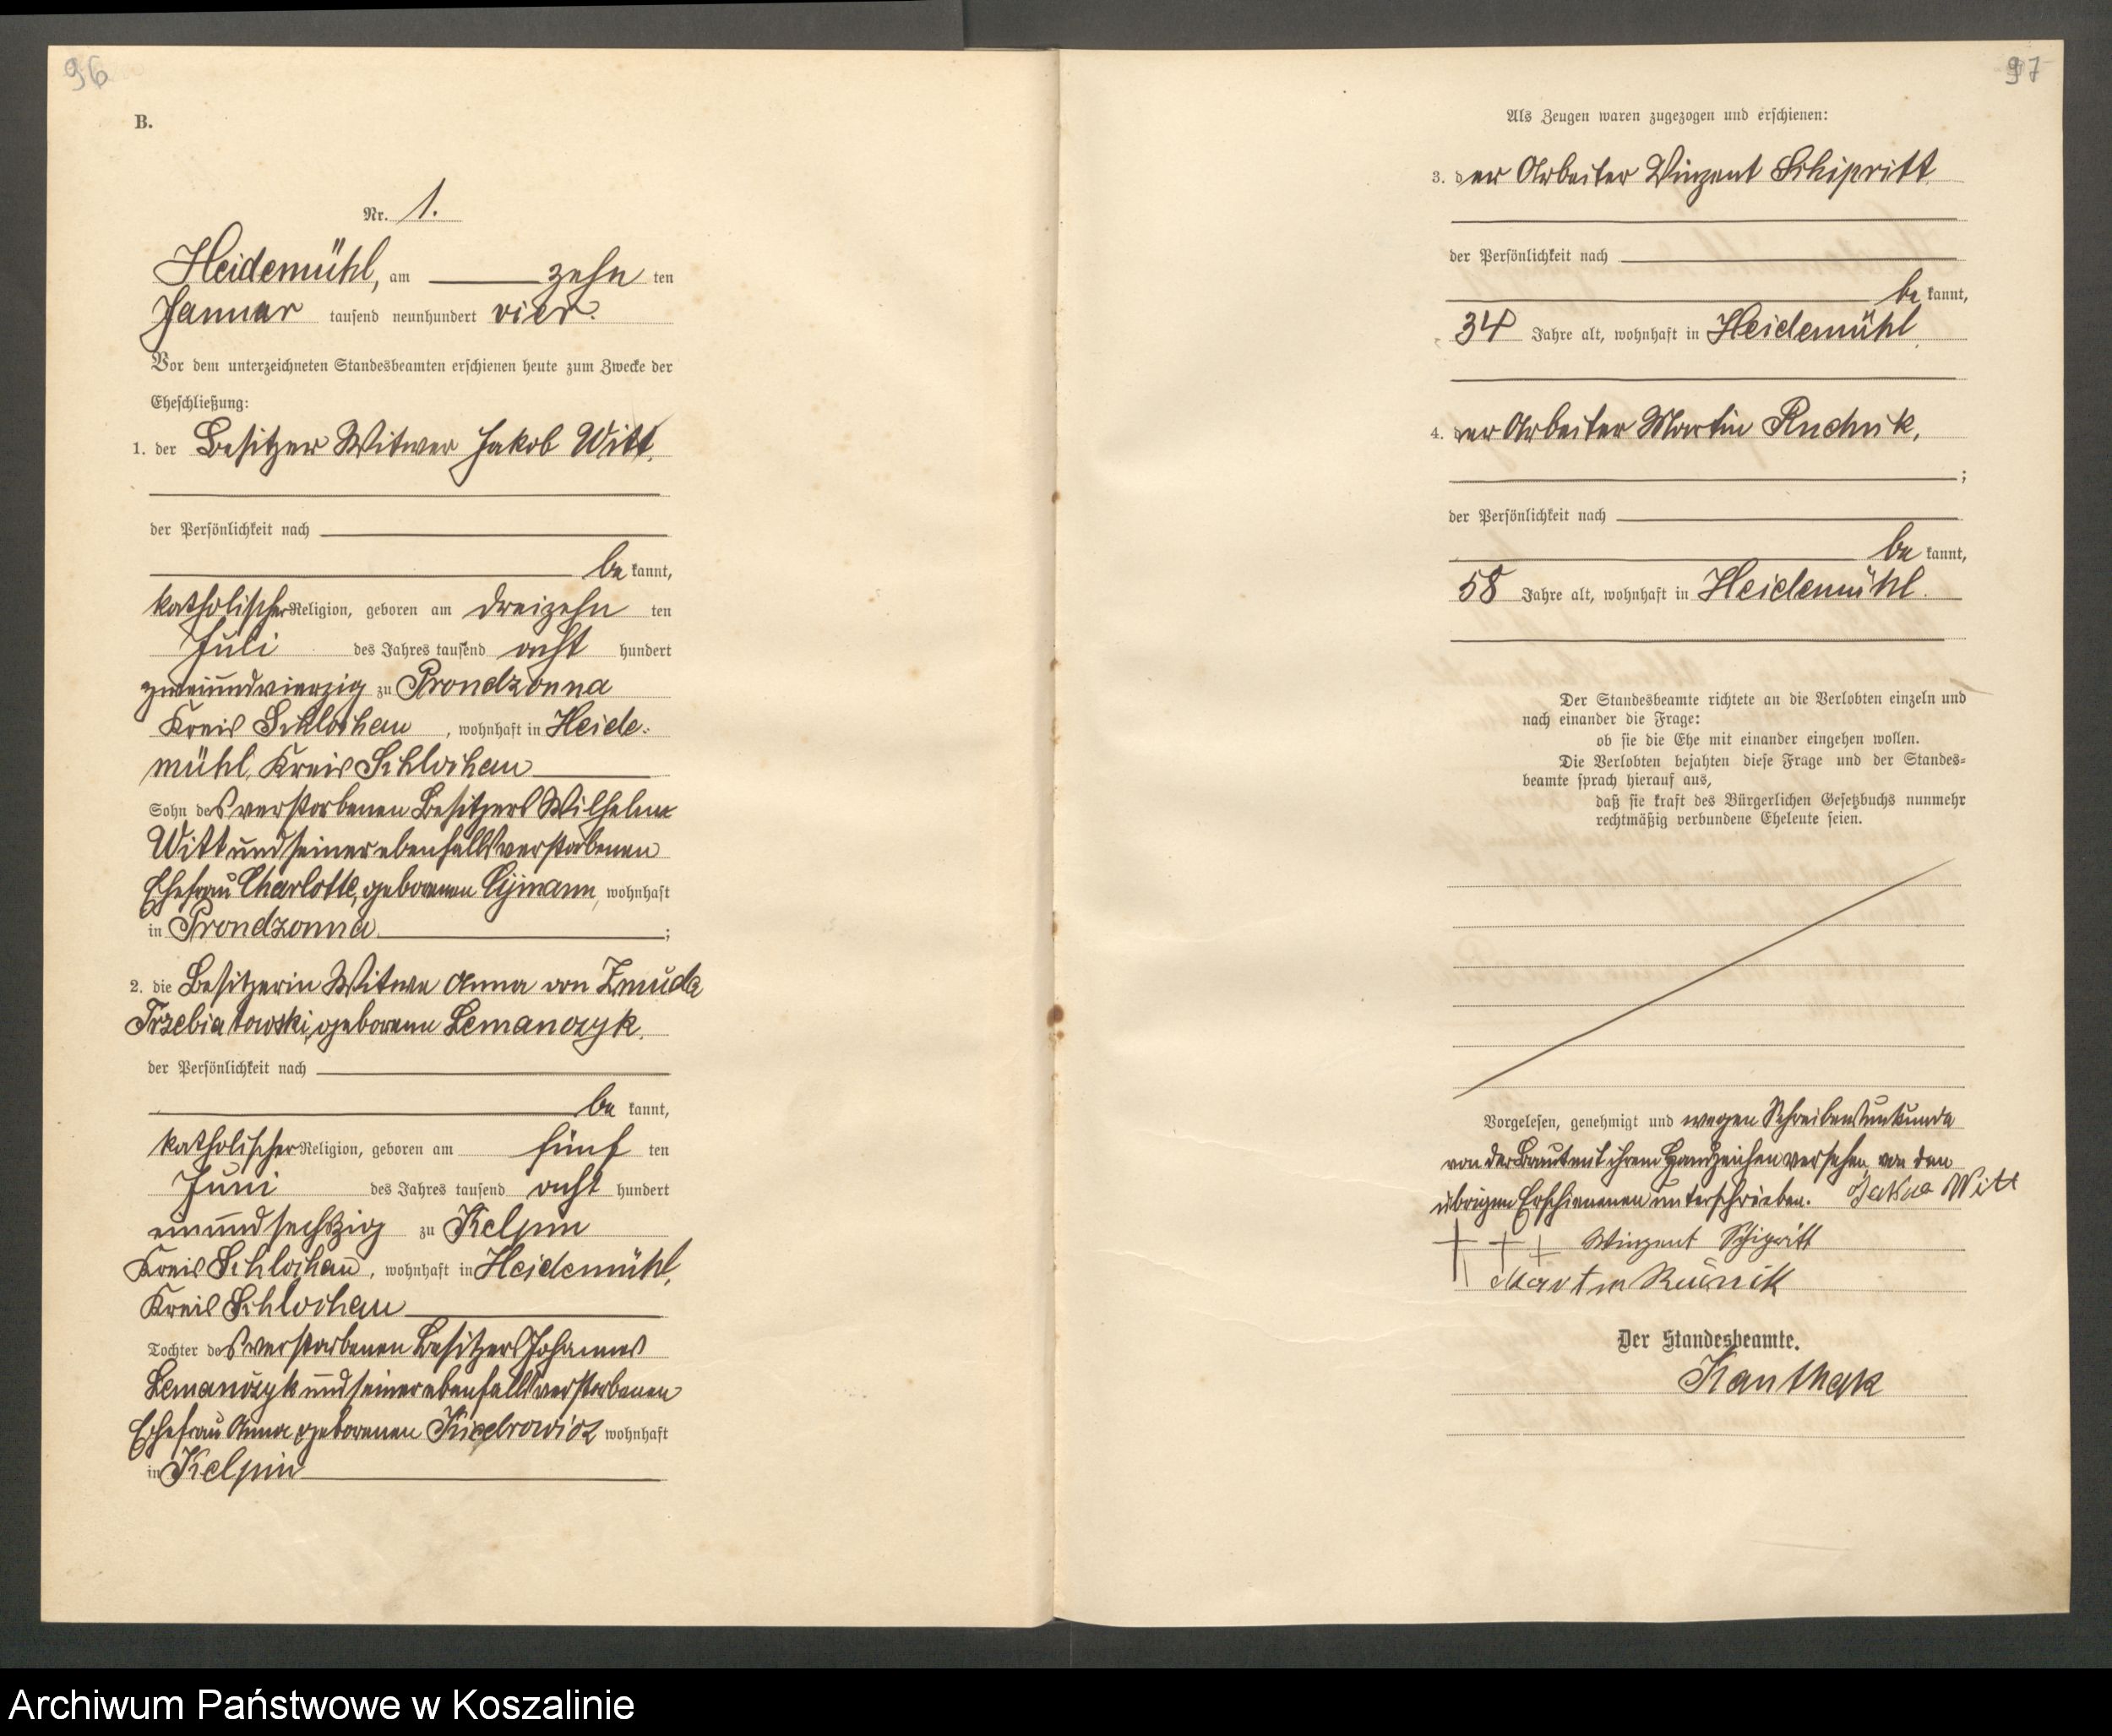 96
B.
Nr. 1.
Heidemühl, am zehn ten
Januar tausend neunhundert vier.
Vor dem unterzeichneten Standesbeamten erschienen heute zum Zwecke der
Eheschließung:
1. der Besitzer Witwer Jakob Witt,
der Persönlichkeit nach
be kannt,
katholischer Religion, geboren am dreizehn ten
Juli des Jahres tausend acht hundert
zweiundvierzig zu Prondzonna
Kreis Schlochau, wohnhaft in Heide-
mühl, Kreis Schlochau
Sohn des verstorbenen Besitzers Wilhelm
Witt und seiner ebenfalls verstorbenen
Ehefrau Charlotte, geborenen, wohnhaft
in Prondzonna;
2. die Besitzerin Witwe Anna von Zmuda
Trzebiatowski, geborene Lemanczyk.
der Persönlichkeit nach
be kannt,
katholischer Religion, geboren am fünf ten
Juni des Jahres tausend acht hundert
einundsechszig zu Kelpin
Kreis Schlochau, wohnhaft in Heidemühl,
Kreis Schlochau
Tochter des verstorbenen Besitzers Johannes
Lemanczyk und seiner ebenfalls verstorbenen
Ehefrau Anna geborenen wohnhaft
in Kelpin
97
Als Zeugen waren zugezogen und erschienen:
3. der Arbeiter Winzent Schipritt
der Persönlichkeit nach
be kannt,
34 Jahre alt, wohnhaft in Heidemühl,
4. der Arbeiter Martin Rudnik,
;
der Persönlichkeit nach
be kannt,
58 Jahre alt, wohnhaft in Heidemühl.
Der Standesbeamte richtete an die Verlobten einzeln und
nach einander die Frage:
ob sie die Ehe mit einander eingehen wollen.
Die Verlobten bejahten diese Frage und der Standes=
beamte sprach hierauf aus,
daß sie kraft des Bürgerlichen Gesetzbuchs nunmehr
rechtmäßig verbundene Eheleute seien.
Vorgelesen, genehmigt und wegen Schreibensunkunde
von der Braut mit ihrem Handzeichen versehen, von den
übrigen Erschienenen unterschrieben. Witt
+ + + Winzent Schipritt
Martin
Der Standesbeamte.
Kanthak
Archiwum Państwowe w Koszalinie